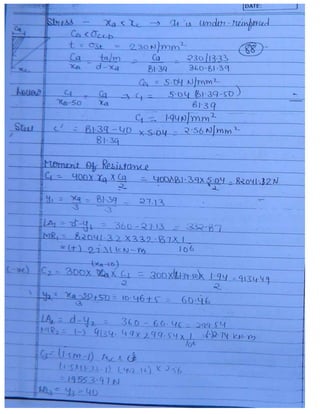 DATE:
Stress - xa < xc → It is under-reinforced
88
Ca < σcbc
t = σst = 230 N/mm²
Ca/xa = ta/m / d-xa = Ca/81.39 = 230/13.33 / 360-81.39
Ca = 5.04 N/mm²
C1/xa-50 = Ca/xa → C1 = 5.04 (81.39-50)/81.39
C1 = 1.94 N/mm²
Steel c' = 81.39-40 × 5.04 = 2.56 N/mm²
Moment Of Resistance
C1 = 400 × xa × Ca/2 = 400×81.39×5.04/2 = 82041.12 N
y1 = xa/3 = 81.39/3 = 27.13
LA1 = d-y1 = 360-27.13 = 332.87
MR1 = 82041.32×332.87×1/10⁶
= (+) 27.31 kN-m
(-ve) C2 = 300 × (xa-50) × C1/2 = 300× × 1.94/2 = 9134.49
y2 = xa-50/3 +50 = 10.46+5 = 60.46
LA2 = d-y2 = 360-60.46 = 299.54
MR2 = (-) 9134.49×299.54×1/10⁶
C3 = (1.5m-1) Asc × c'
= 19553.97 N
y3 = 40